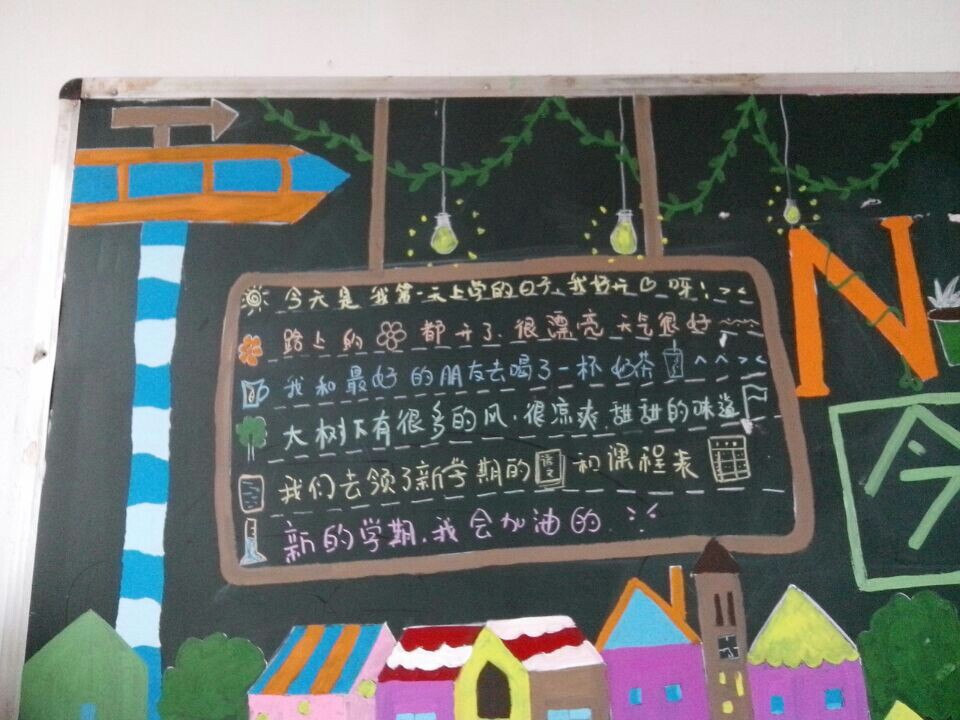 今天是我第一天上学的日子,我好开心呀!
路上的 都开了.很漂亮 天气很好
我和最好的朋友去喝了一杯奶茶
大树下有很多的风.很凉爽.甜甜的味道
我们去领了新学期的语文和课程表
新的学期.我会加油的.
N
今